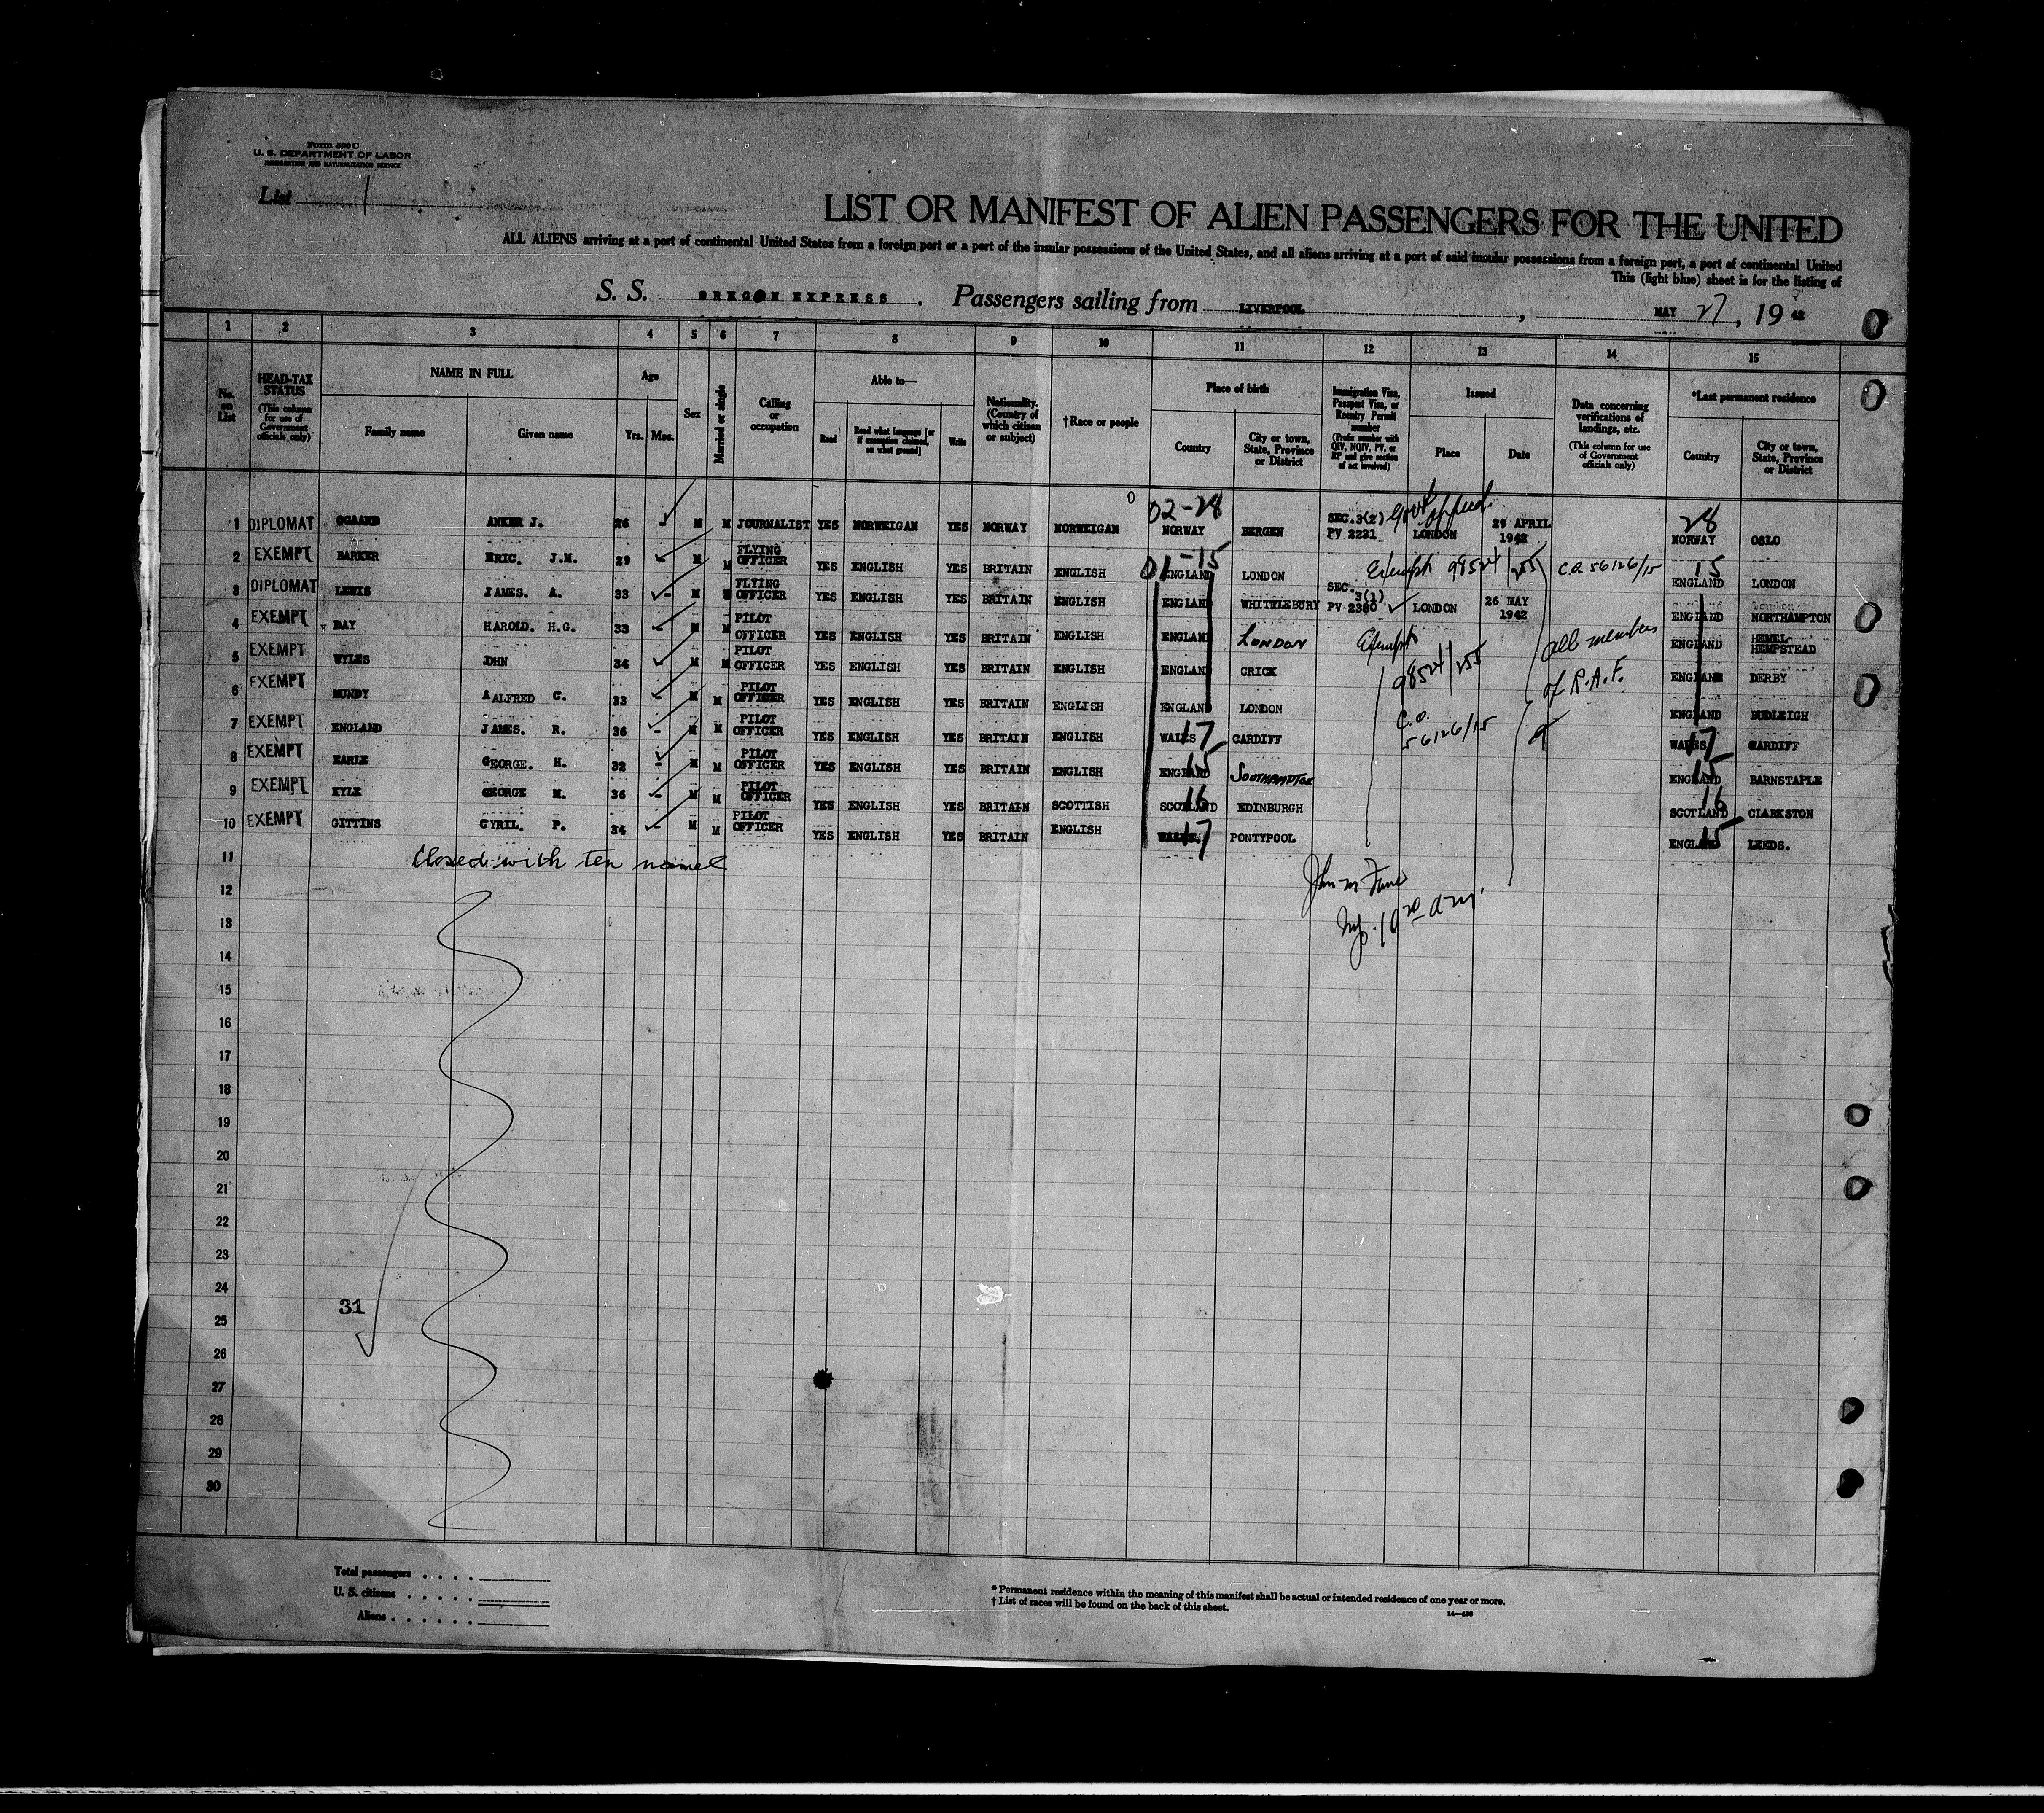 Form 500 C
U. S. DEPARTMENT OF LABOR
IMMIGRATION AND NATURALIZATION SERVICE
List 1
LIST OR MANIFEST OF ALIEN PASSENGERS FOR THE UNITED
ALL ALIENS arriving at a port of continental United States from a foreign port or a port of the insular possessions of the United States, and all aliens arriving at a port of said insular possessions from a foreign port, a port of continental United
This (light blue) sheet is for the listing of
S. S. OREGON EXPRESS. Passengers sailing from LIVERPOOL, MAY 27, 19 42
1 2 3 4 5 6 7 8 9 10 11 12 13 14 15
No. on List
HEAD-TAX STATUS (This column for use of Government officials only)
NAME IN FULL
Family name Given name
Age
Yrs. Mos.
Sex
Married or single
Calling or occupation
Able to—
Read Read what language [or if exemption claimed, on what ground] Write
Nationality. (Country of which citizen or subject)
†Race or people
Place of birth
Country City or town, State, Province or District
Immigration Visa, Passport Visa, or Reentry Permit number (Prefix number with QIV, NQIV, PV, or RP and give section of act involved)
Issued
Place Date
Data concerning verifications of landings, etc. (This column for use of Government officials only)
*Last permanent residence
Country City or town, State, Province or District
02-28 Govt offical. 28
1 DIPLOMAT OGAARD ANKER J. 26 - M M JOURNALIST YES NORWEIGAN YES NORWAY NORWEIGAN NORWAY BERGEN SEC.3(2) PV 2231 LONDON 29 APRIL 1942 NORWAY OSLO
2 EXEMPT BARKER ERIC. J.M. 29 - M M FLYING OFFICER YES ENGLISH YES BRITAIN ENGLISH 01-15 ENGLAND LONDON Exempt 98524/255 C.O. 56126/15 15 ENGLAND LONDON
3 DIPLOMAT LEWIS JAMES. A. 33 - M M FLYING OFFICER YES ENGLISH YES BRITAIN ENGLISH ENGLAND WHITTLEBURY SEC. 3(1) PV-2380 LONDON 26 MAY 1942 ENGLAND NORTHAMPTON
4 EXEMPT DAY HAROLD. H.G. 33 - M M PILOT OFFICER YES ENGLISH YES BRITAIN ENGLISH ENGLAND LONDON Exempt all members ENGLAND HEMEL-HEMPSTEAD
5 EXEMPT WYLES JOHN 34 M M PILOT OFFICER YES ENGLISH YES BRITAIN ENGLISH ENGLAND CRICK 98524/255 of R.A.F. ENGLAND DERBY
6 EXEMPT MUNDY ALFRED C. 33 - M M PILOT OFFICER YES ENGLISH YES BRITAIN ENGLISH ENGLAND LONDON C.O. 56126/15 ENGLAND BUDLEIGH
7 EXEMPT ENGLAND JAMES. R. 36 - M M PILOT OFFICER YES ENGLISH YES BRITAIN ENGLISH WALES 17 CARDIFF WALES 17 CARDIFF
8 EXEMPT EARLE GEORGE. H. 32 - M M PILOT OFFICER YES ENGLISH YES BRITAIN ENGLISH ENGLAND 15 SOUTHAMPTON ENGLAND 15 BARNSTAPLE
9 EXEMPT KYLE GEORGE M. 36 - M M PILOT OFFICER YES ENGLISH YES BRITAIN SCOTTISH SCOTLAND 16 EDINBURGH SCOTLAND 16 CLARKSTON
10 EXEMPT GITTINS CYRIL. P. 34 - M M PILOT OFFICER YES ENGLISH YES BRITAIN ENGLISH WALES. 17 PONTYPOOL ENGLAND 15 LEEDS.
11 Closed with ten names
12
13
14
15
16
17
18
19
20
21
22
23
24
31
25
26
27
28
29
30
Total passengers
U. S. citizens
Aliens
* Permanent residence within the meaning of this manifest shall be actual or intended residence of one year or more.
† List of races will be found on the back of this sheet.
14—430